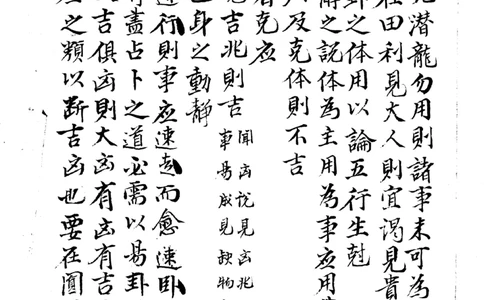 潜龍勿用則諸事未可為
在田利見大人則宜謁見貴
卦之体用以論五行生尅
解之説体為主用為事應用
及克体則不吉
克应
見吉兆則吉 聞凶説見凶兆
事易成見缺物
身之動静
行則事应速走而愈速卧
盡占卜之道必需以易卦
吉俱凶則大凶有凶有吉
之類以断吉凶也要在圓